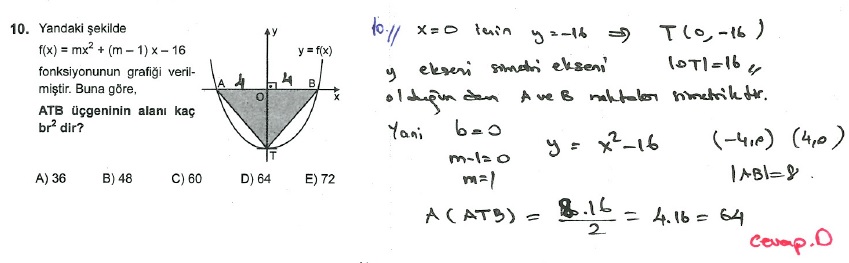 10. Yandaki şekilde
f(x) = mx² + (m – 1) x – 16
fonksiyonunun grafiği veril-
miştir. Buna göre,
ATB üçgeninin alanı kaç
br² dir?
y
y = f(x)
4 4
A B
O x
T
A) 36 B) 48 C) 60 D) 64 E) 72
10.// x=0 için y=-16 ⇒ T(0,-16)
y ekseni simetri ekseni |OT|=16 //
olduğundan A ve B noktaları simetriktir.
Yani b=0 y = x²-16 (-4,0) (4,0)
m-1=0
m=1 |AB|=8.
A(ATB) = 8.16 / 2 = 4.16 = 64
Cevap.D